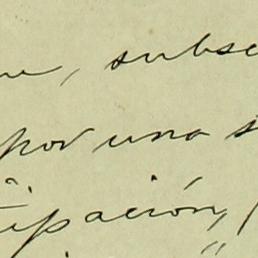 , subsc
por una s
cipación,